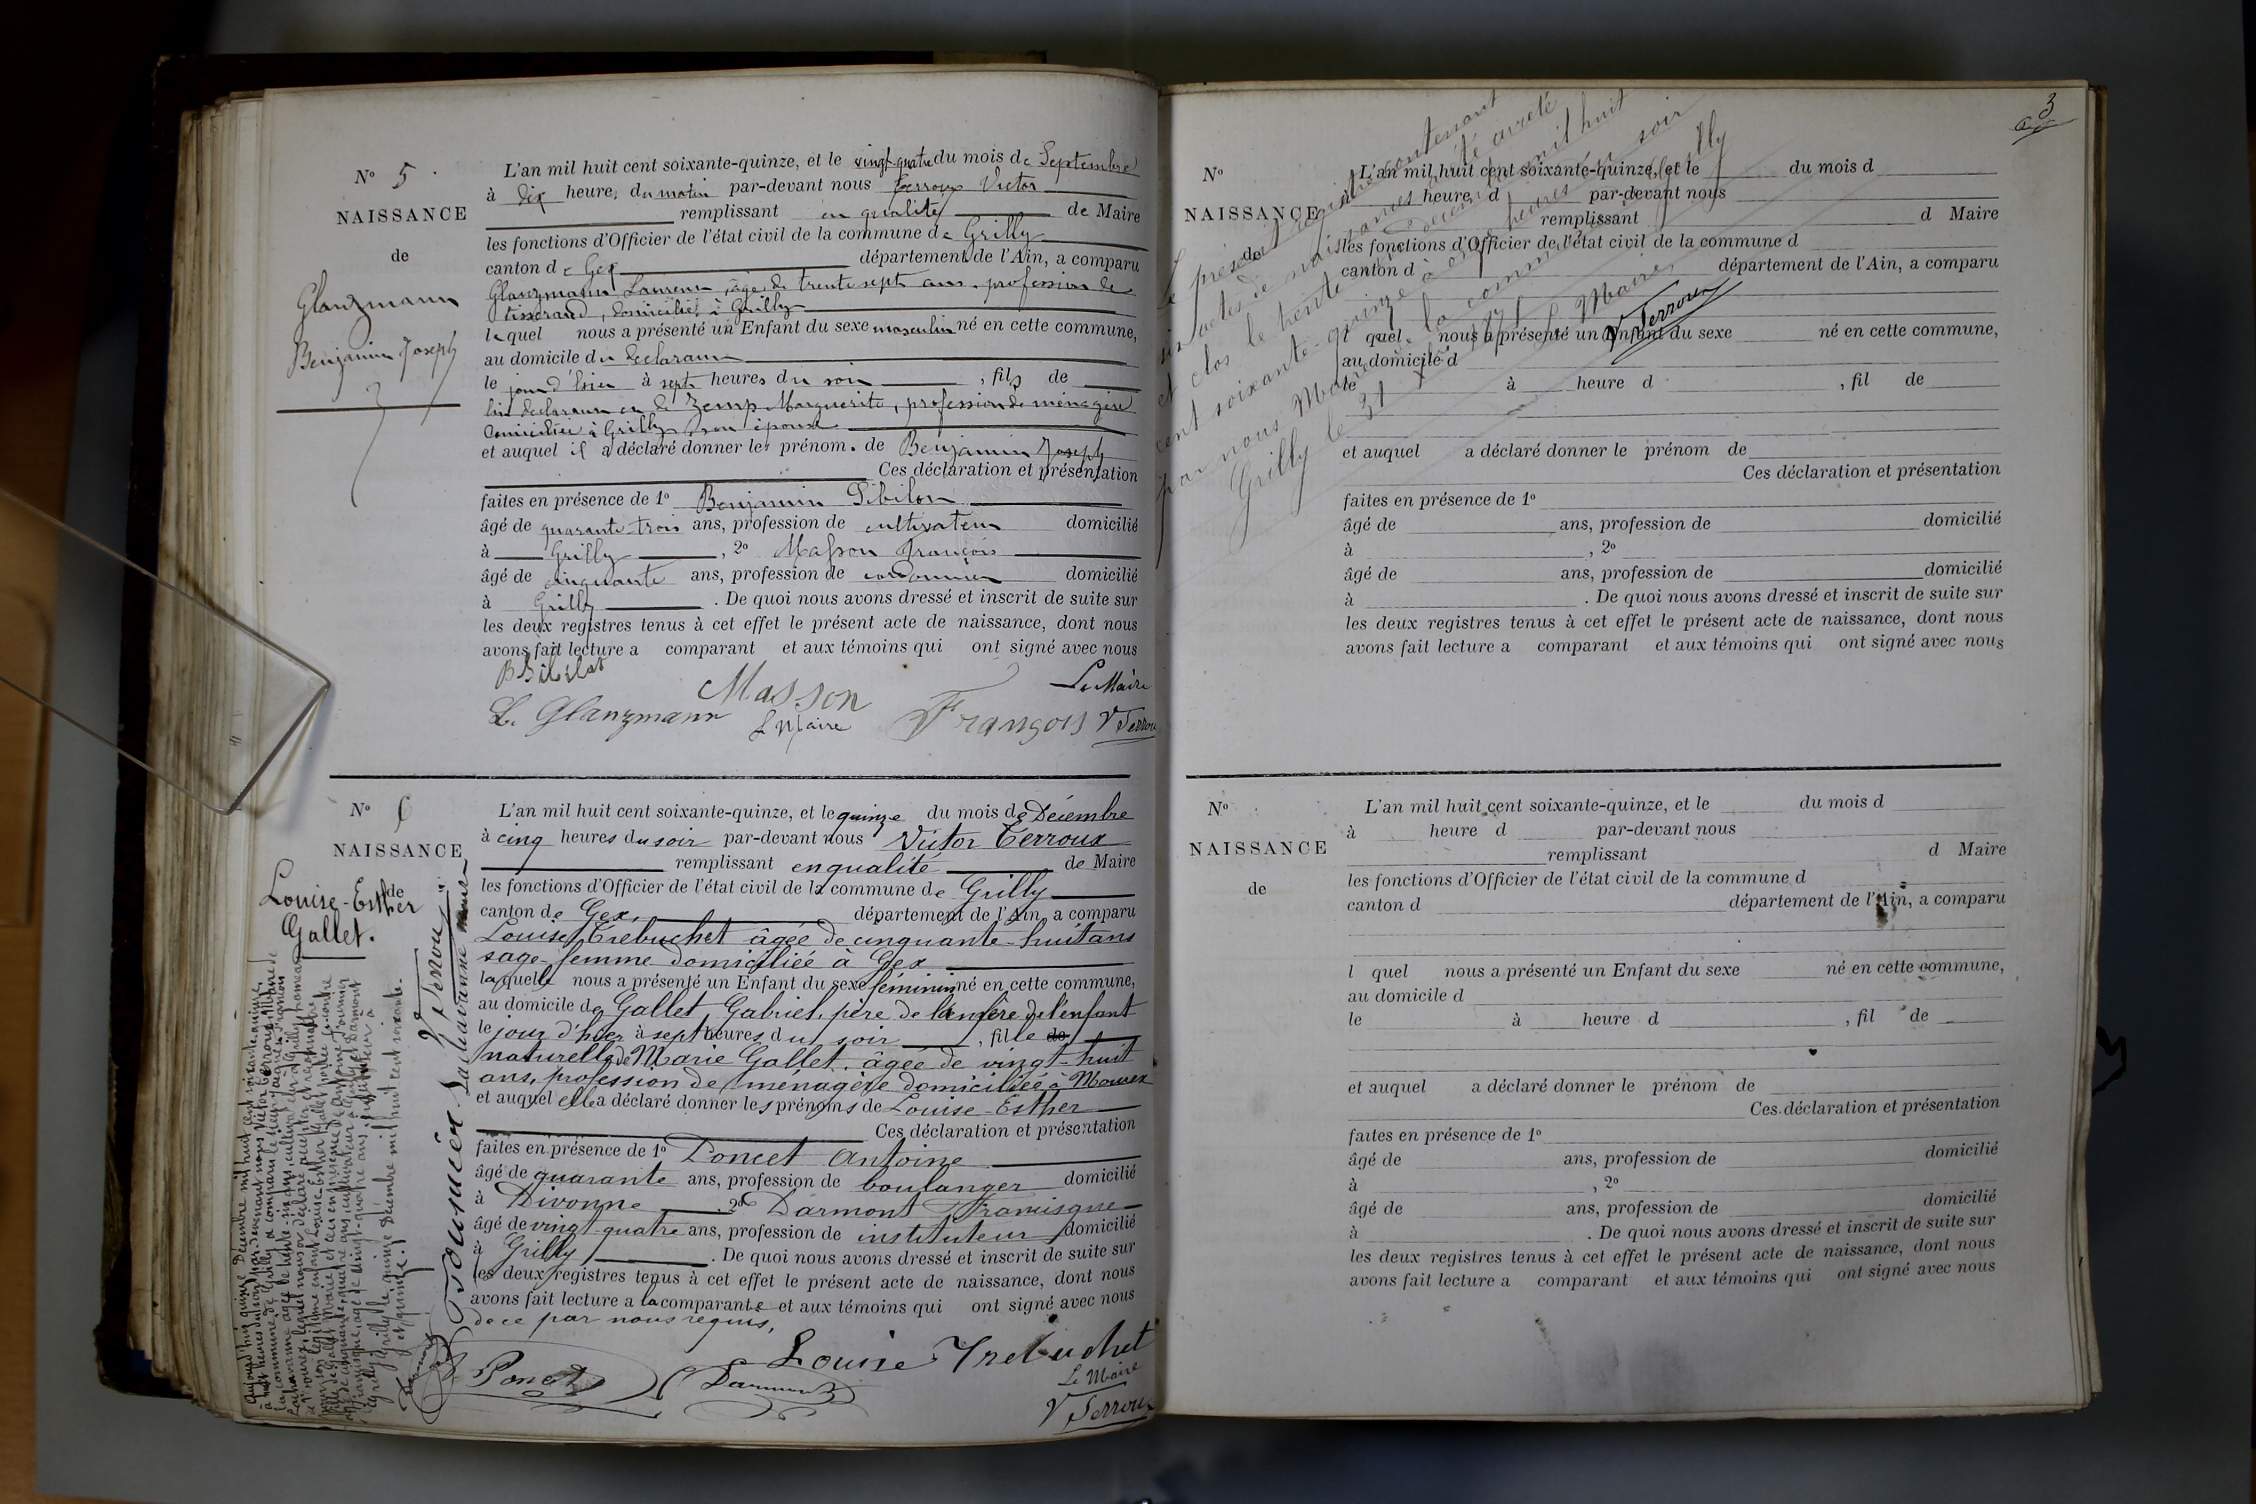 N° 5
NAISSANCE
de
Glanzmann
Benjamin Joseph
L'an mil huit cent soixante-quinze, et le vingt-quatre du mois de Septembre
à dix heure, du matin par-devant nous Terroux Victor
remplissant en qualité de Maire
les fonctions d'Officier de l'état civil de la commune de Grilly
canton de Gex département de l'Ain, a comparu
Glanzmann Laurent, âgé de trente sept ans, profession de
tisserand, domicilié à Grilly
lequel nous a présenté un Enfant du sexe masculin né en cette commune,
au domicile du déclarant
le jour d'hier à sept heures du soir, fils de
lui déclarant et de Zemp Marguerite, profession de ménagère
domiciliée à Grilly son épouse
et auquel il a déclaré donner les prénom. de Benjamin Joseph
Ces déclaration et présentation
faites en présence de 1° Benjamin Sibilon
âgé de quarante trois ans, profession de cultivateur domicilié
à Grilly, 2° Masson François
âgé de cinquante ans, profession de cordonnier domicilié
à Grilly. De quoi nous avons dressé et inscrit de suite sur
les deux registres tenus à cet effet le présent acte de naissance, dont nous
avons fait lecture a comparant et aux témoins qui ont signé avec nous
B Sibilat
L. Glanzmann Masson François
Le Maire
Le Maire
V Terroux
N° 6
NAISSANCE
de
Louise-Esther
Gallet.
L'an mil huit cent soixante-quinze, et le quinze du mois de Décembre
à cinq heures du soir par-devant nous Victor Terroux
remplissant en qualité de Maire
les fonctions d'Officier de l'état civil de la commune de Grilly
canton de Gex, département de l'Ain, a comparu
Louise Trebuchet âgée de cinquante-huit ans
sage-femme domiciliée à Gex
laquelle nous a présenté un Enfant du sexe féminin né en cette commune,
au domicile de Gallet Gabriel, père de la mère de l'enfant
le jour d'hier à sept heures du soir, fille de
naturelle de Marie Gallet, âgée de vingt-huit
ans, profession de ménagère domiciliée à Mourex
et auquel elle a déclaré donner les prénoms de Louise-Esther
Ces déclaration et présentation
faites en présence de 1° Poncet Antoine
âgé de quarante ans, profession de boulanger domicilié
à Divonne, 2° Darmont Francisque
âgé de vingt-quatre ans, profession de instituteur domicilié
à Grilly. De quoi nous avons dressé et inscrit de suite sur
les deux registres tenus à cet effet le présent acte de naissance, dont nous
avons fait lecture a la comparante et aux témoins qui ont signé avec nous
de ce par nous requis,
Louise Trebuchet
A. Poncet Darmont
Le Maire
V Terroux
Aujourd'hui quinze Décembre mil huit cent soixante-quinze,
à huit heures du soir, par-devant nous Victor Terroux, Maire de
la commune de Grilly a comparu le sieur
Lachavanne âgé de trente-six ans, cultivateur à Grilly, hameau
de Mourex, lequel nous a déclaré accepter et reconnaître
pour son légitime enfant Louise Esther Gallet
fille de Gallet Marie, et ces en présence de Antoine Fournier
âgé de cinquante-quatre ans, cultivateur à Grilly et Darmont
Francisque, âgé de vingt-quatre ans, instituteur à
Grilly. Grilly le quinze Décembre mil huit cent soixante-
et quinze.
Fournier Lachavanne
V Terroux
Darmont
3
Le présent registre contenant
six actes de naissances a été arreté
et clos le trente un Décembre mil huit
cent soixante-quinze à onze heures du soir
par nous Maire de la commune de Grilly
Grilly le 31 Xbre 1875 Le Maire,
V Terroux
N°
NAISSANCE
de
L'an mil huit cent soixante-quinze, et le du mois d
heure d par-devant nous
remplissant d Maire
les fonctions d'Officier de l'état civil de la commune d
canton d département de l'Ain, a comparu
l quel nous a présenté un Enfant du sexe né en cette commune,
au domicile d
le à heure d , fil de
et auquel a déclaré donner le prénom de
Ces déclaration et présentation
faites en présence de 1°
âgé de ans, profession de domicilié
à , 2°
âgé de ans, profession de domicilié
à . De quoi nous avons dressé et inscrit de suite sur
les deux registres tenus à cet effet le présent acte de naissance, dont nous
avons fait lecture a comparant et aux témoins qui ont signé avec nous
N°
NAISSANCE
de
L'an mil huit cent soixante-quinze, et le du mois d
à heure d par-devant nous
remplissant d Maire
les fonctions d'Officier de l'état civil de la commune d
canton d département de l'Ain, a comparu
l quel nous a présenté un Enfant du sexe né en cette commune,
au domicile d
le à heure d , fil de
et auquel a déclaré donner le prénom de
Ces déclaration et présentation
faites en présence de 1°
âgé de ans, profession de domicilié
à , 2°
âgé de ans, profession de domicilié
à . De quoi nous avons dressé et inscrit de suite sur
les deux registres tenus à cet effet le présent acte de naissance, dont nous
avons fait lecture a comparant et aux témoins qui ont signé avec nous